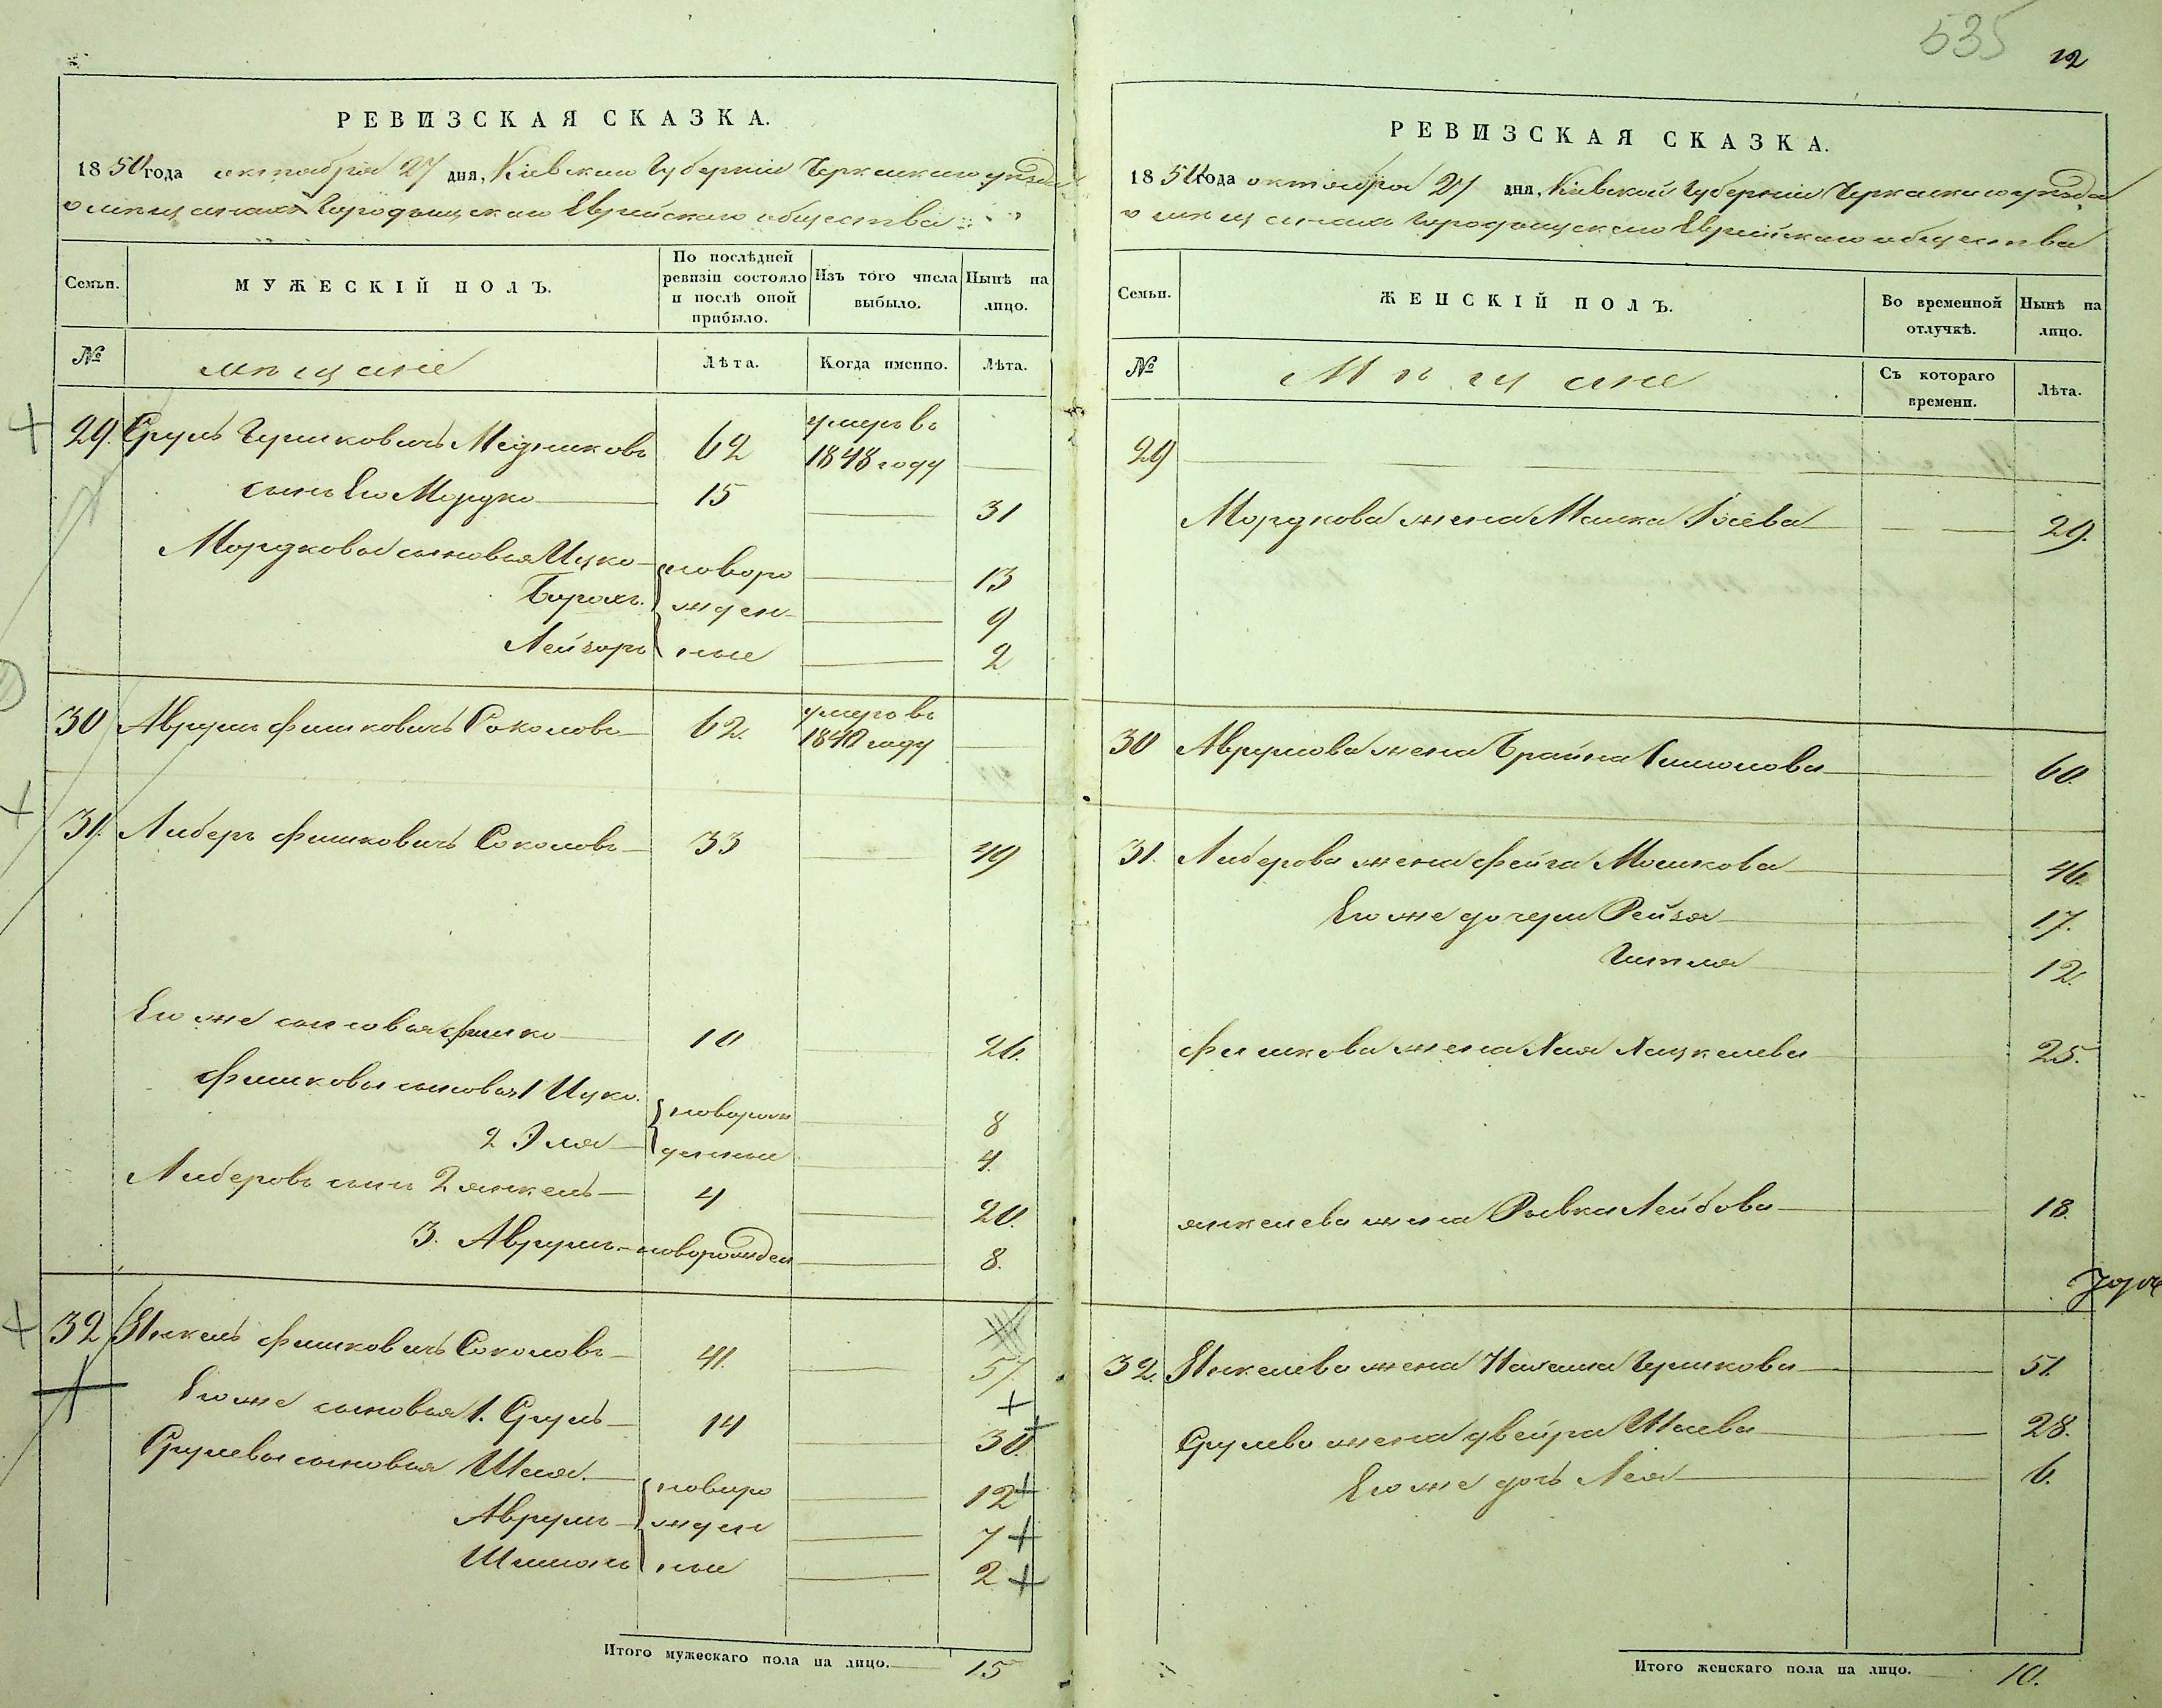 535 12
РЕВИЗСКАЯ СКАЗКА.
1850 года октября 27 дня, Кіевской Губерніи Черкаскаго уѣзда
о мѣщанахъ Городыщскаго Еврейскаго общества
Семьи.
МУЖЕСКІЙ ПОЛЪ.
По послѣдней
ревизіи состояло
и послѣ оной
прибыло.
Изъ того числа
выбыло.
Нынѣ на
лицо.
№
мѣщане
Лѣта.
Когда имѣнно.
Лѣта.
29. Сруль Гершковичъ Медниковъ 62 умеръ въ
1848 году
сынъ Его Мордко 15 31
Мордковы сыновья Ицко новоро 13
Борохъ. жден 9
Лейзоръ ные 2
30 Аврумъ Фишковичъ Соколовъ 62. умеръ въ
1840 году
31. Либеръ Фишковичъ Соколовъ 33 49
Его же сыновья Фишко 10 26.
Фишковы сыновья 1 Ицко. новорож 8
2 Эля денные 4.
Либеровъ сынъ 2 янкель 4 20.
3. Аврумъ новорожден 8.
32 Янкель Фишковичъ Соколовъ 41. 57.
Его же сыновья 1. Сруль 14 30.
Срулевы сыновья Шая новоро 12
Аврумъ жден 7
Шимонъ ные 2
Итого мужескаго пола на лицо. 15
РЕВИЗСКАЯ СКАЗКА.
1850 года октября 27 дня, Кіевской Губерніи Черкаскаго уѣзда
о мѣщанахъ Городыщскаго Еврейскаго общества
Семьи.
ЖЕНСКІЙ ПОЛЪ.
Во временной
отлучкѣ.
Нынѣ на
лицо.
№
Мѣщане
Съ котораго
времени.
Лѣта.
29
Мордкова жена Малка 29.
30 Аврумова жена Брайна Симонова 60.
31. Либерова жена Фейга Мошкова 46.
Его же дочери Рейзя 17.
12.
Фишкова жена Хая Хацкелева 25.
янкелева жена Рывка Лейбова 18.
32. Янкелева жена Гершкова 51.
Срулева жена двейра Шаева 28.
Его же дочь Лея 6.
Итого женскаго пола на лицо. 10.